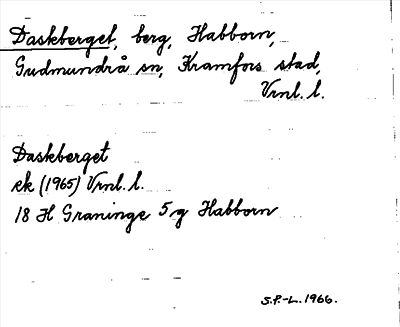 Daskberget, berg, Habborn,
Gudmundrå sn, Kramfors stad,
Vrnl. l.
Daskberget
ek (1965) Vrnl. l.
18 H Graninge 5 g Habborn
S.P.-L. 1966.